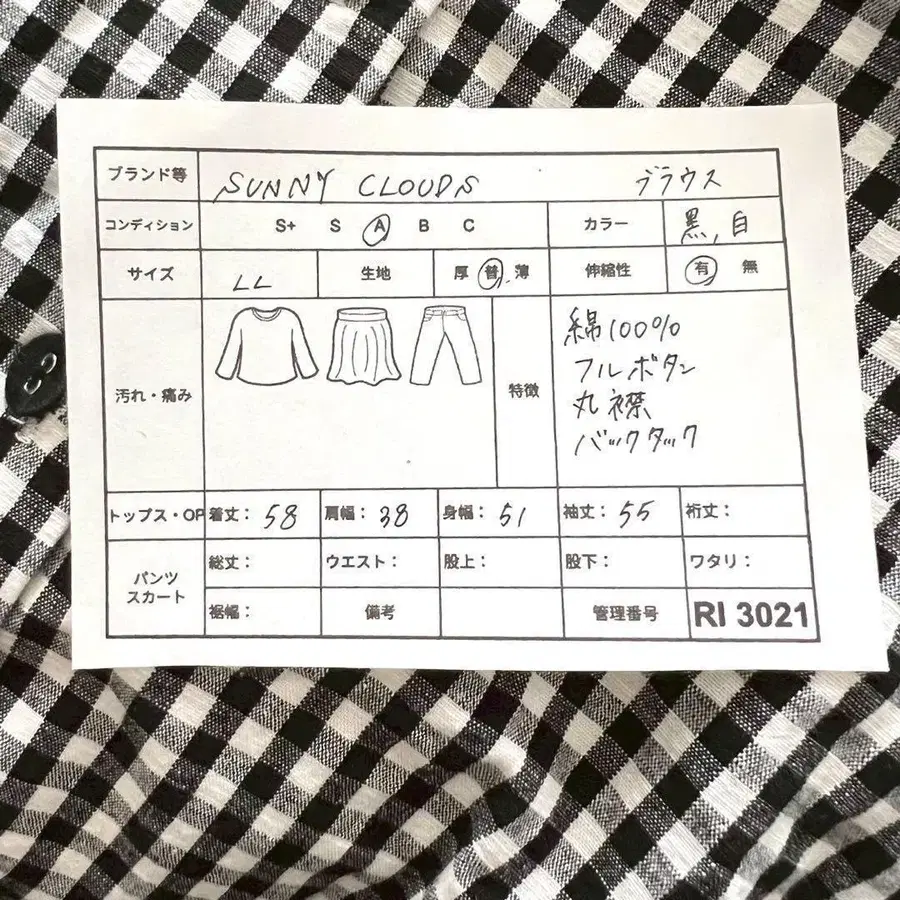 ブランド等 SUNNY CLOUDS ブラウス
コンディション S+ S A B C カラー 黒,白
サイズ LL 生地 厚 普 薄 伸縮性 有 無
汚れ・痛み 特徴
綿100%
フルボタン
丸襟
バックタック
トップス・OP 着丈：58 肩幅：38 身幅：51 袖丈：55 裄丈：
パンツ
スカート
総丈： ウエスト： 股上： 股下： ワタリ：
裾幅： 備考 管理番号 RI 3021